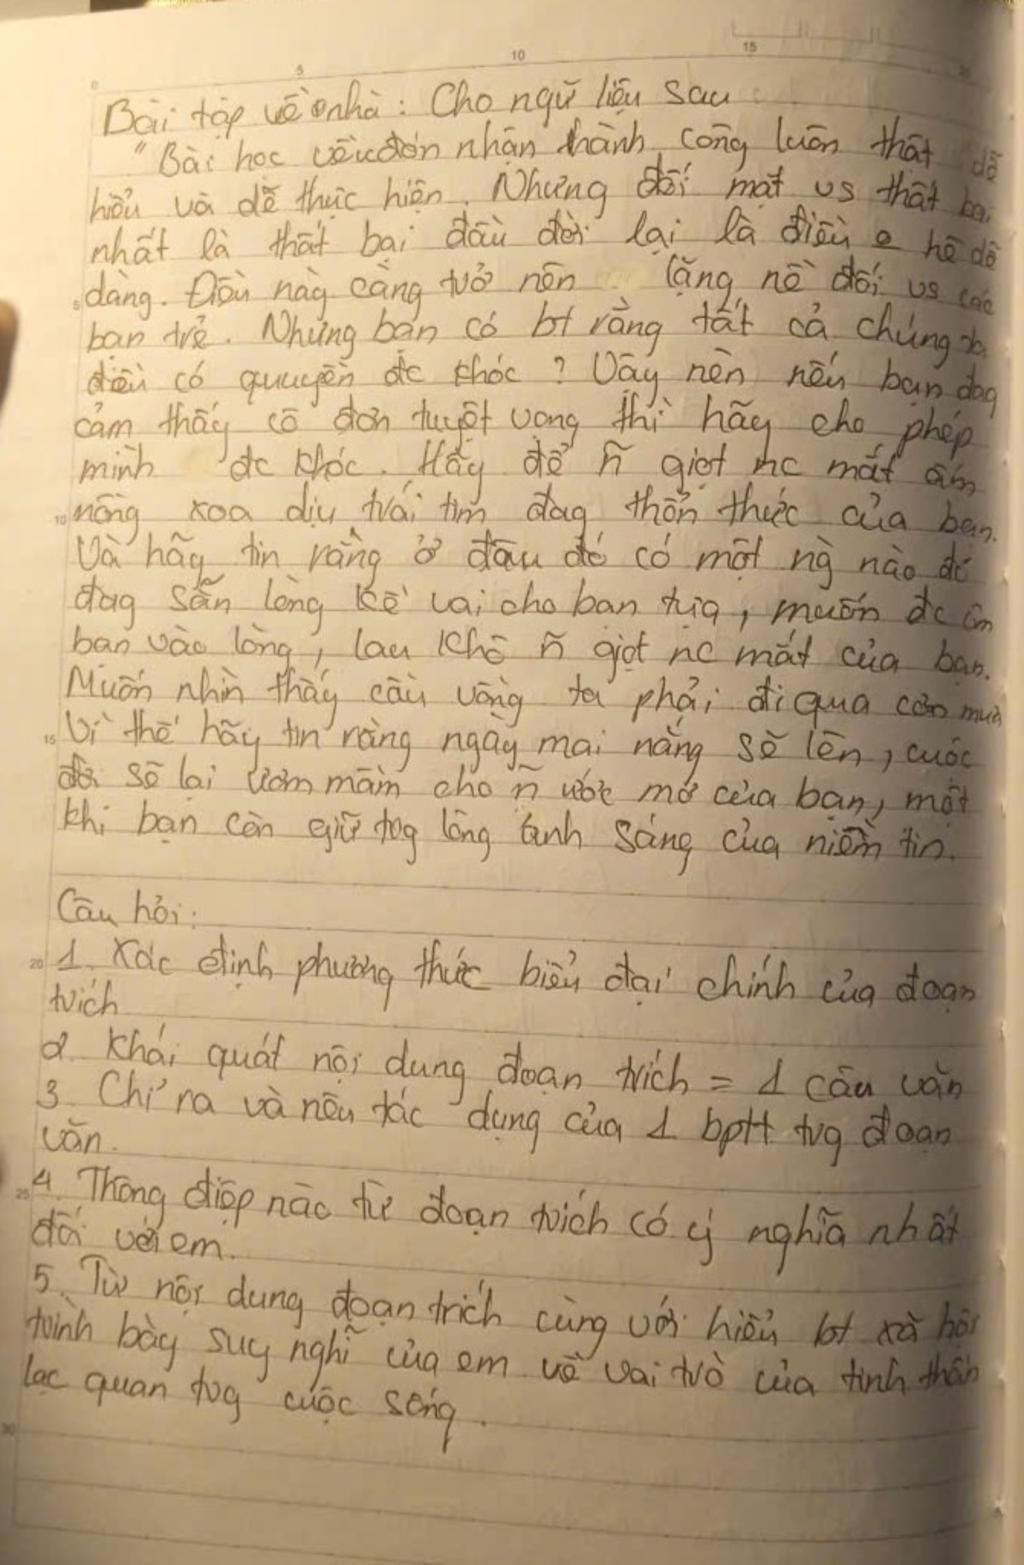 0 5 10 15
Bài tập về nhà: Cho ngữ liệu sau
"Bài học về đón nhận thành công luôn thật dễ
hiểu và dễ thực hiện. Nhưng đối mặt vs thất bại
nhất là thất bại đầu đời lại là điều o hề dễ
5 dàng. Điều này càng trở nên lặng nề đối vs các
bạn trẻ. Nhưng bạn có bt rằng tất cả chúng ta
điều có quuyền đc khóc? Vậy nên nếu bạn đag
cảm thấy cô đơn tuyệt vọng thì hãy cho phép
mình đc khóc. Hãy để ñ giọt nc mắt ấm
10 nóng xoa dịu trái tim đag thổn thức của bạn.
Và hãy tin rằng ở đâu đó có một ng nào đó
đag sẵn lòng kề vai cho bạn tựa, muốn đc ôm
bạn vào lòng, lau khô ñ giọt nc mắt của bạn.
Muốn nhìn thấy cầu vồng ta phải đi qua cơn mưa
15 Vì thế hãy tin rằng ngày mai nắng sẽ lên, cuộc
đời sẽ lại ươm mầm cho ñ ước mơ của bạn, một
khi bạn còn giữ trg lòng ánh sáng của niềm tin.
Câu hỏi:
20 1. Xác định phương thức biểu đại chính của đoạn
trích
2. Khái quát nội dung đoạn trích = 1 câu văn
3. Chỉ ra và nêu tác dụng của 1 bptt trg đoạn
văn.
25 4. Thông điệp nào từ đoạn trích có ý nghĩa nhất
đối với em.
5. Từ nội dung đoạn trích cùng với hiểu bt xã hội
trình bày suy nghĩ của em về vai trò của tinh thần
lạc quan trg cuộc sống.
30